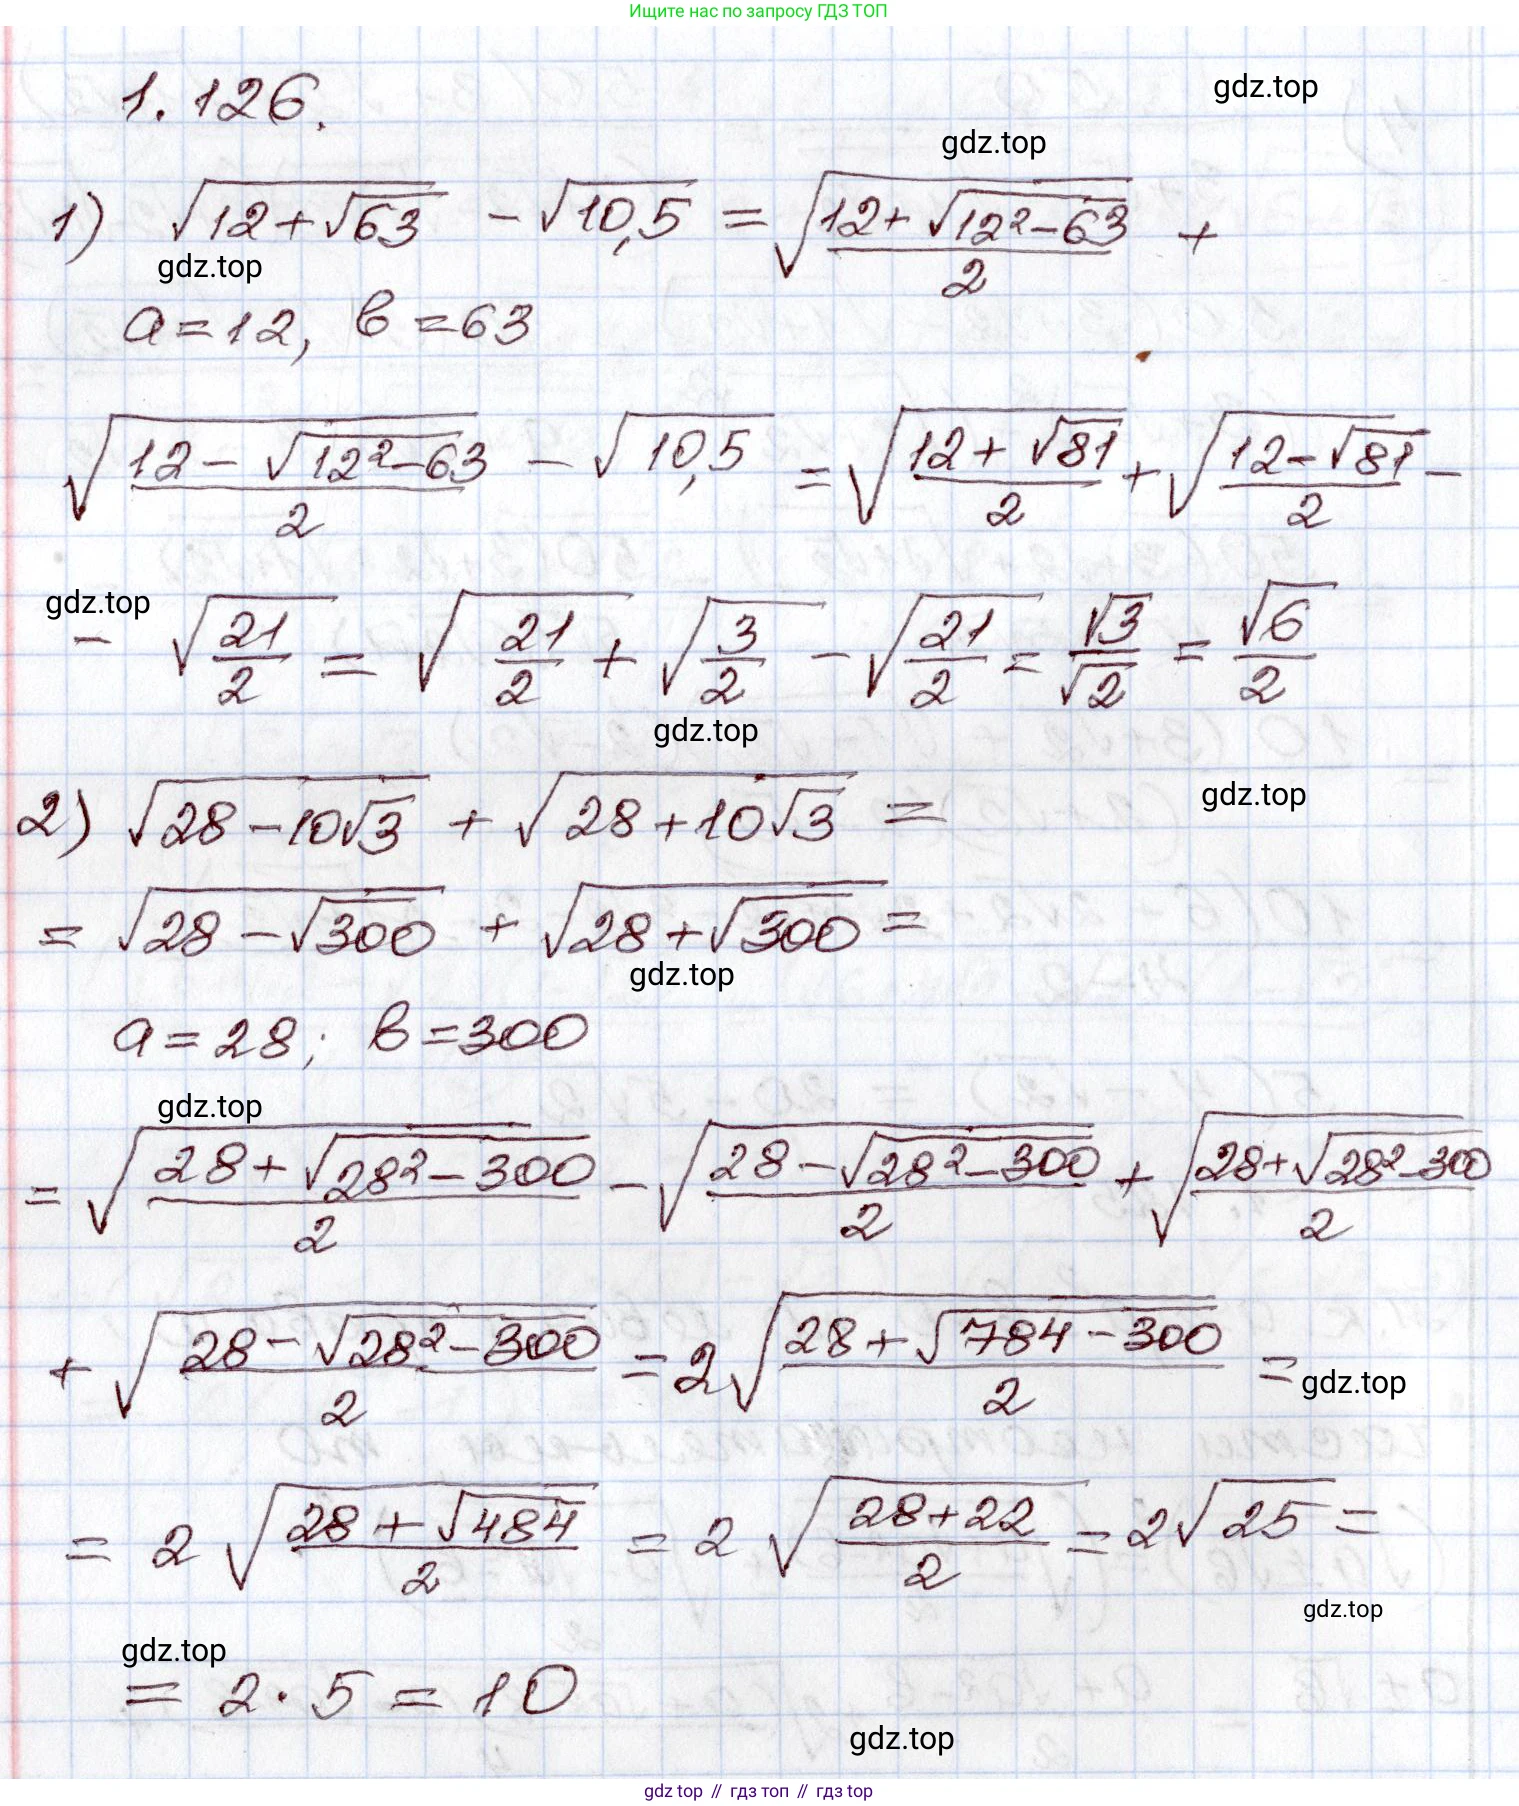 Ищите нас по запросу ГДЗ ТОП
1.126.
gdz.top
gdz.top
1) √(12+√63) - √10,5 = √((12+√(12²-63))/2) +
gdz.top
a=12, в=63
√((12-√(12²-63))/2) - √10,5 = √((12+√81)/2) + √((12-√81)/2) -
gdz.top
- √(21/2) = √(21/2) + √(3/2) - √(21/2) = √3/√2 = √6/2
gdz.top
gdz.top
2) √(28-10√3) + √(28+10√3) =
= √(28-√300) + √(28+√300) =
gdz.top
a=28; в=300
gdz.top
= √((28+√(28²-300))/2) - √((28-√(28²-300))/2) + √((28+√(28²-300))/2)
+ √((28-√(28²-300))/2) = 2√((28+√(784-300))/2) =
gdz.top
= 2√((28+√484)/2) = 2√((28+22)/2) = 2√25 =
gdz.top
gdz.top
= 2·5 = 10
gdz.top
gdz top // гдз топ // гдз top